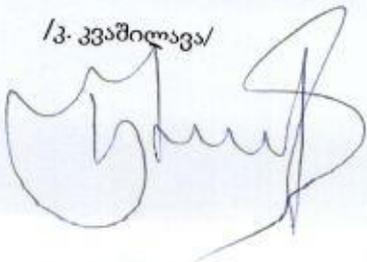 /პ. კვაშილავა/